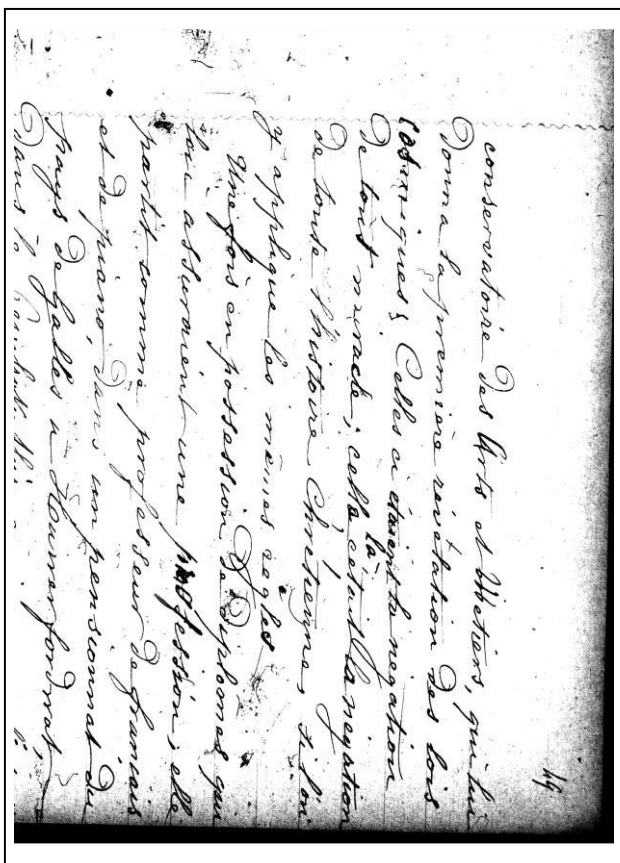 49
conservatoire des Arts et Metiers, qui lui
donna la première révélation des lois
cosmiques; Celles ci étaient la negation
de tout miracle; cella cetait la negation
là
de toute l'histoire Chrétienne, si l'on
y applique les mêmes regles
Une fois en possession de diplomes qui
lui assuraient une profession, elle
partit comme professeur de français
et de piano, dans un pensionnat du
pays de Galles a
dans le